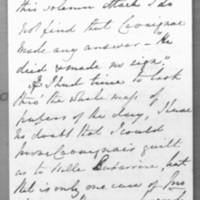 this solemn Attack I do
not find that Cassagnac
made any answer - He
died & made no sign."
If I had time to look
thro' the whole mass of
papers of the day, I have
no doubt that I could
prove Cassagnac's guilt
as to Belle , but
that is only one case of